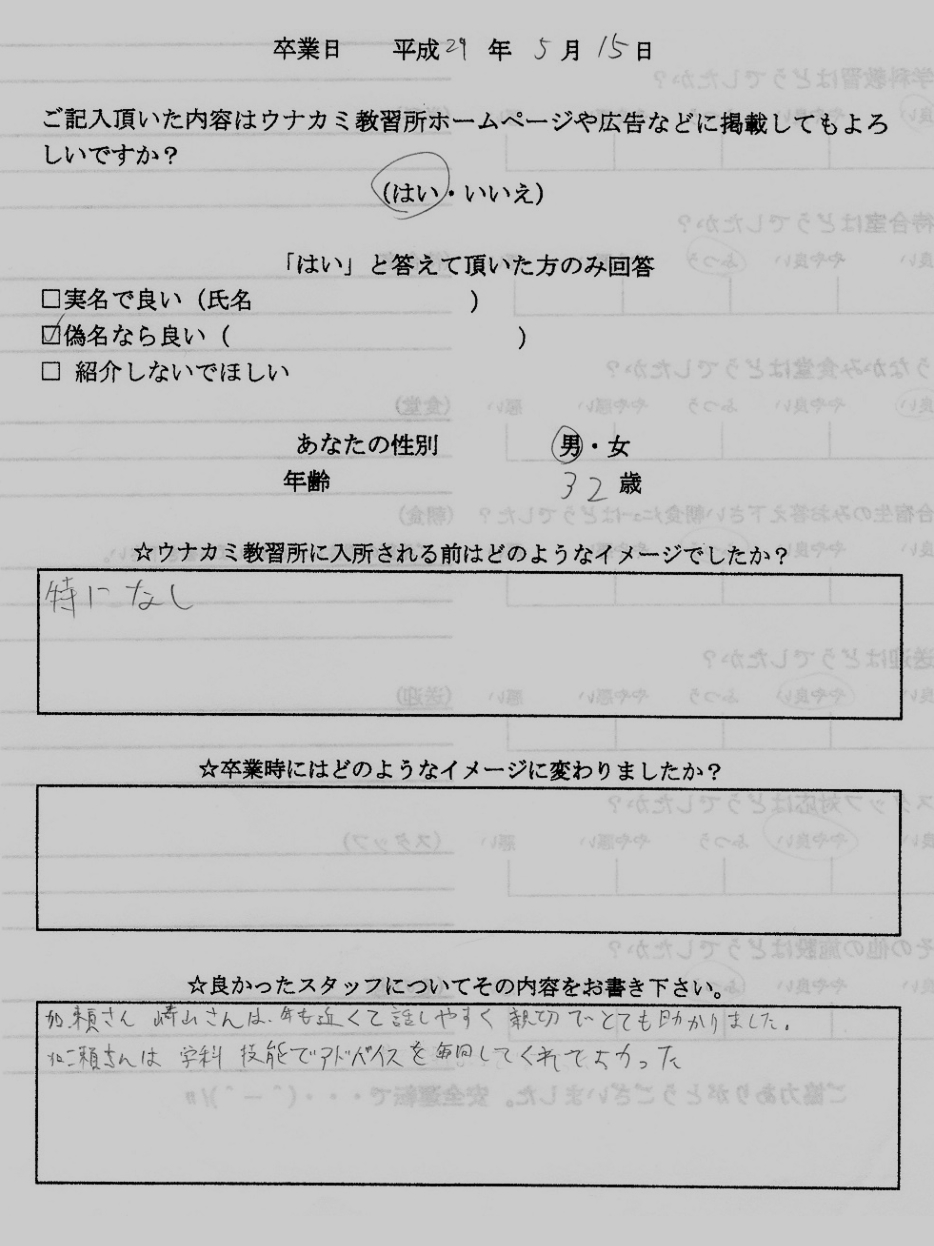 卒業日 平成29年 5月 15日
ご記入頂いた内容はウナカミ教習所ホームページや広告などに掲載してもよろ
しいですか？
(はい・いいえ)
「はい」と答えて頂いた方のみ回答
□実名で良い（氏名 ）
☑偽名なら良い（ ）
□ 紹介しないでほしい
あなたの性別 男・女
年齢 32 歳
☆ウナカミ教習所に入所される前はどのようなイメージでしたか？
特になし
☆卒業時にはどのようなイメージに変わりましたか？
☆良かったスタッフについてその内容をお書き下さい。
加瀬さん 崎山さんは、年も近くて話しやすく 親切で とても助かりました。
加瀬さんは 学科 技能でアドバイスを毎回してくれてよかった